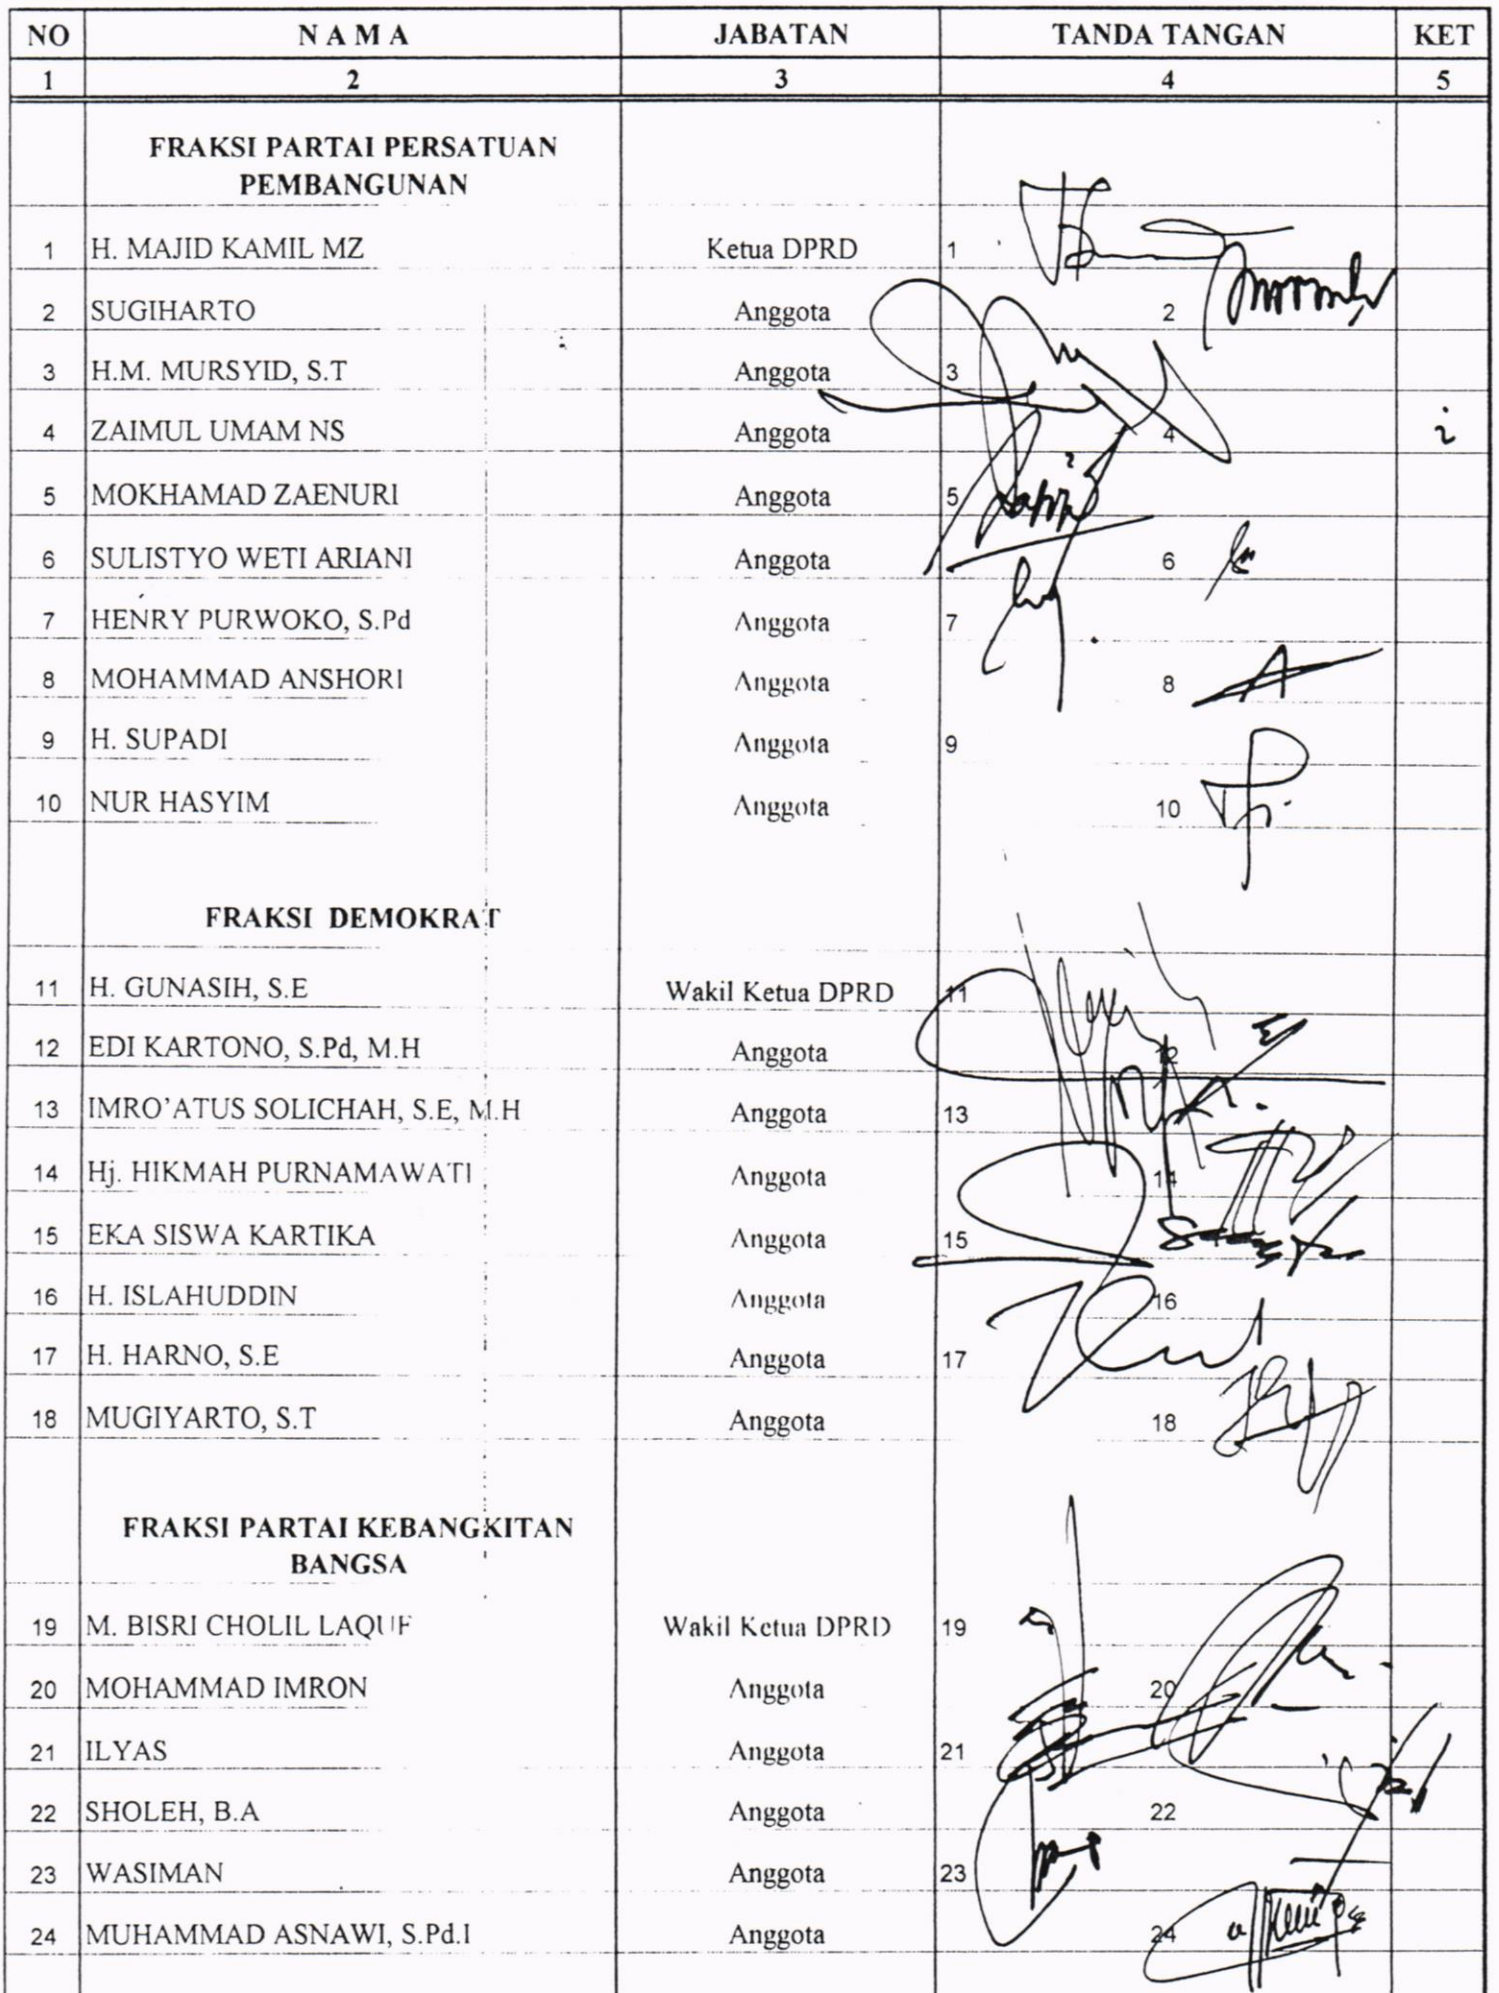 NO N A M A JABATAN TANDA TANGAN KET
1 2 3 4 5
FRAKSI PARTAI PERSATUAN
PEMBANGUNAN
1 H. MAJID KAMIL MZ Ketua DPRD 1
2 SUGIHARTO Anggota 2
3 H.M. MURSYID, S.T Anggota 3
4 ZAIMUL UMAM NS Anggota 4
5 MOKHAMAD ZAENURI Anggota 5
6 SULISTYO WETI ARIANI Anggota 6
7 HENRY PURWOKO, S.Pd Anggota 7
8 MOHAMMAD ANSHORI Anggota 8
9 H. SUPADI Anggota 9
10 NUR HASYIM Anggota 10
FRAKSI DEMOKRAT
11 H. GUNASIH, S.E Wakil Ketua DPRD 11
12 EDI KARTONO, S.Pd, M.H Anggota 12
13 IMRO'ATUS SOLICHAH, S.E, M.H Anggota 13
14 Hj. HIKMAH PURNAMAWATI Anggota 14
15 EKA SISWA KARTIKA Anggota 15
16 H. ISLAHUDDIN Anggota 16
17 H. HARNO, S.E Anggota 17
18 MUGIYARTO, S.T Anggota 18
FRAKSI PARTAI KEBANGKITAN
BANGSA
19 M. BISRI CHOLIL LAQUF Wakil Ketua DPRD 19
20 MOHAMMAD IMRON Anggota 20
21 ILYAS Anggota 21
22 SHOLEH, B.A Anggota 22
23 WASIMAN Anggota 23
24 MUHAMMAD ASNAWI, S.Pd.I Anggota 24